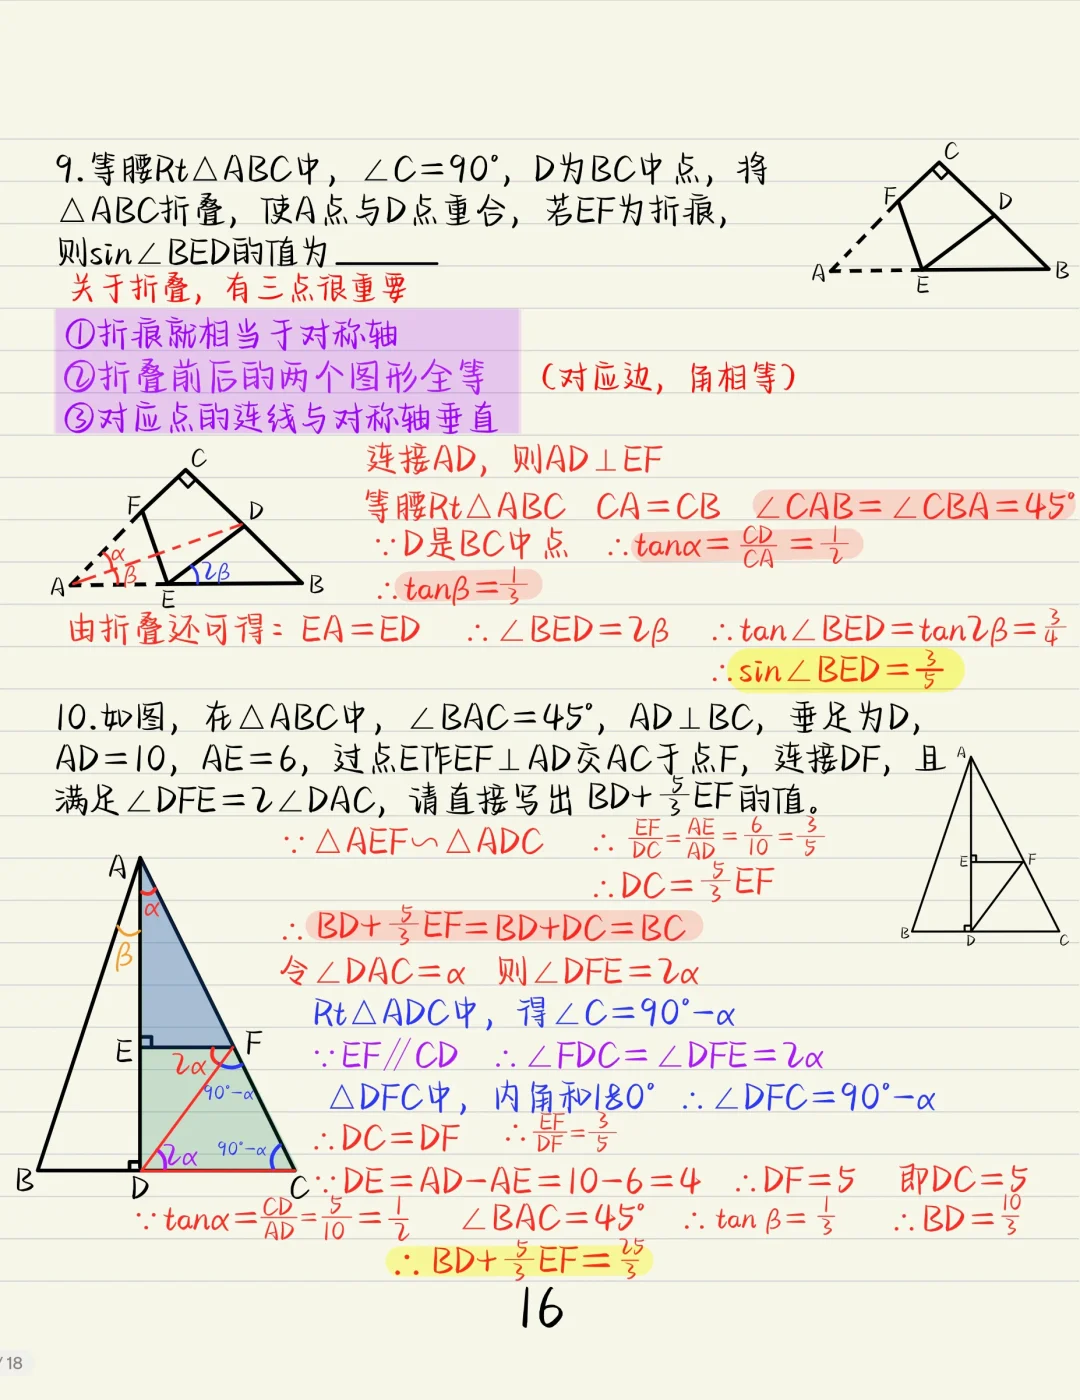 9.等腰Rt△ABC中，∠C=90°，D为BC中点，将
△ABC折叠，使A点与D点重合，若EF为折痕，
则sin∠BED的值为______
C
F
D
A
E
B
关于折叠，有三点很重要
①折痕就相当于对称轴
②折叠前后的两个图形全等 （对应边，角相等）
③对应点的连线与对称轴垂直
连接AD，则AD⊥EF
等腰Rt△ABC CA=CB ∠CAB=∠CBA=45°
∵D是BC中点 ∴tanα=CD/CA=1/2
∴tanβ=1/3
C
F
D
α
β
2β
A
E
B
由折叠还可得：EA=ED ∴∠BED=2β ∴tan∠BED=tan2β=3/4
∴sin∠BED=3/5
10.如图，在△ABC中，∠BAC=45°，AD⊥BC，垂足为D，
AD=10，AE=6，过点E作EF⊥AD交AC于点F，连接DF，且
满足∠DFE=2∠DAC，请直接写出BD+5/3EF的值。
A
E
F
B
D
C
∵△AEF∽△ADC ∴EF/DC=AE/AD=6/10=3/5
∴DC=5/3EF
∴BD+5/3EF=BD+DC=BC
令∠DAC=α 则∠DFE=2α
Rt△ADC中，得∠C=90°-α
∵EF∥CD ∴∠FDC=∠DFE=2α
△DFC中，内角和180° ∴∠DFC=90°-α
∴DC=DF ∴EF/DF=3/5
A
α
β
E
F
2α
90°-α
2α
90°-α
B
D
C
∵DE=AD-AE=10-6=4 ∴DF=5 即DC=5
∵tanα=CD/AD=5/10=1/2 ∠BAC=45° ∴tanβ=1/3 ∴BD=10/3
∴BD+5/3EF=25/3
16
/18